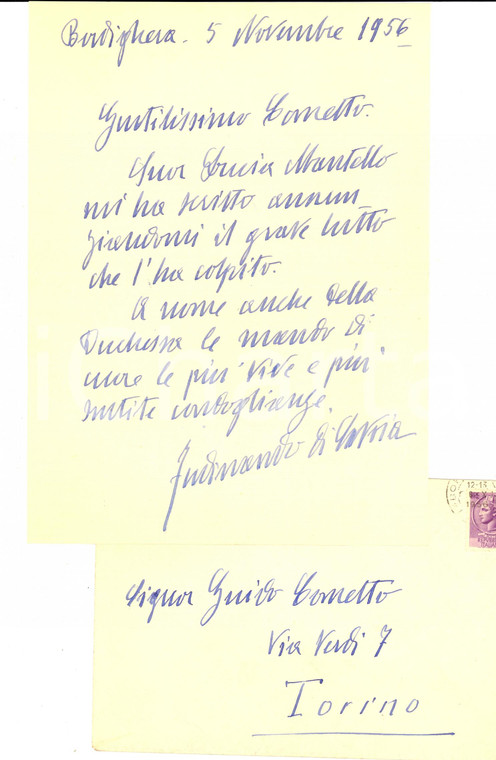 Bordighera. 5 Novembre 1956
Gentilissimo Cornetto.
Suor Lucia Mantello
mi ha scritto annun
ziandomi il grave lutto
che l'ha colpito.
A nome anche della
Duchessa le mando di
cuore le più vive e più
sentite condoglianze.
Ferdinando di Savoia
12-13
Signor Guido Cornetto
Via Verdi 7
Torino